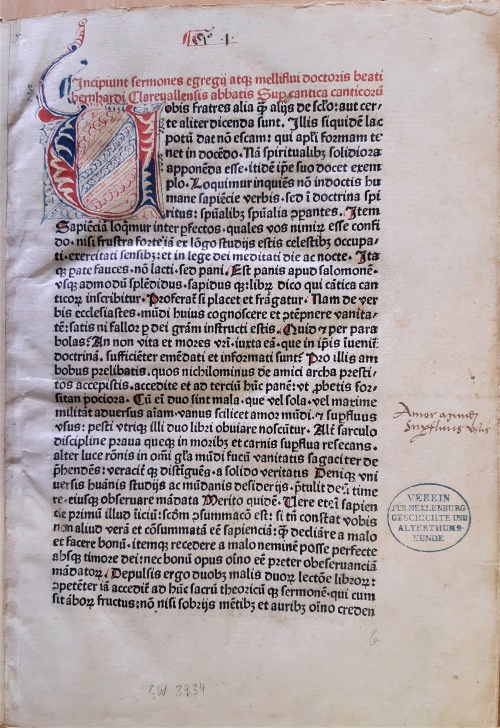 Sermo .1.
Incipiunt sermones egregij atq̄ melliflui doctoris beati
bernhardi Clareuallensis abbatis Sup̱ cantica canticorū
Uobis fratres alia q̄ alijs de sc̄lo: aut cer⸗
te aliter dicenda sunt. Illis siquidē lac
potū dat nō escam: qui apl̄i formam te
net in docēdo. Nā spiritualibꝫ solidiora
apponēda esse. itidē ip̄e suo docet exem
plo. Loquimur inquiēs nō indoctis hu
mane sapiēcie verbis. sed ī doctrina spi
ritus: sp̄ualibꝫ sp̄ualia ꝯpantes. Item
Sapiēciā loq̄mur inter ꝑfectos. quales vos nimiꝝ esse confi
do. nisi frustra forte īā ex lōgo studijs estis celestibꝫ occupa⸗
ti. exercitati sensibꝫ: et in lege dei meditati die ac nocte. Ita
q̄ pate fauces. nō lacti. sed pani. Est panis apud salomonē.
vsq̄ admodū splēdidus. sapidus q̄: libꝝ dico qui cātica can
ticoꝝ inscribitur. Proferat̄ si placet et frāgatur. Nam de ver
bis ecclesiastes. mūdi huius cognoscere et ꝯtēpnere vanita⸗
tē: satis ni fallor ꝑ dei grām instructi estis. Quid ⁊ per para
bolas? An non vita et mores vr̄i. iuxta eā. que in ip̄is īuenit̄
doctrinā. sufficiēter emēdati et informati sunt? Pro illis am
bobus prelibatis. quos nichilominus de amici archa presti⸗
tos accepistis. accedite et ad terciū hūc panē: vt ꝓbetis for⸗
sitan pociora. Cū em̄ duo sint mala. que vel sola. vel maxime
militāt aduersus aīam. vanus scilicet amor mūdi. ⁊ supfluus
vsus: pesti vtriq̄ illi duo libri obuiare noscūtur. Alt̄ sarculo
discipline praua queq̄ in moribꝫ et carnis supflua resecans.
alter luce rōnis in om̄i gl̄a mūdi fucū vanitatis sagaciter de
p̄hendēs: veraciꝉ q̄ distīguēs. a solido veritatis Deniq̄ vni
uersis huānis studijs ac mūdanis desiderijs. p̄tulit deū time
re. eiusq̄ obseruare mādata Merito quidē. Uere etī sapien
cie primū illud īiciū: scd̄m ꝯsummacō est: si tn̄ constat vobis
non aliud verā et cōsummatā ee sapienciā: q̄ decliāre a malo
et facere bonū. itemq̄ recedere a malo neminē posse perfecte
absq̄ timore dei: nec bonū opus oīno eē preter obseruanciā
mādatoꝝ. Depulsis ergo duobꝫ malis duoꝝ lectōe libroꝝ:
ꝯpetēter iā accedit̄ ad hūc sacrū theoricū q̄ sermonē. qui cum
sit āboꝝ fructus: nō nisi sobrijs mētibꝫ et auribꝫ oīno creden
Amor a mūdi
Supfluus vsus
VEREIN
FÜR MEKLENBURG
GESCHICHTE UND
ALTERTHUMS-
KUNDE
GW 3934